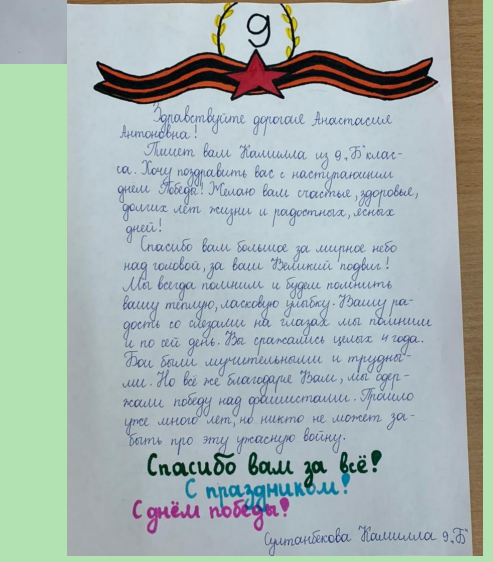 9
Здравствуйте дорогая Анастасия
Антоновна!
Пишет вам Камилла из 9 „Б" клас-
са. Хочу поздравить вас с наступающим
днем Победы! Желаю вам счастья, здоровья,
долгих лет жизни и радостных, ясных
дней!
Спасибо вам большое за мирное небо
над головой, за ваш Великий подвиг!
Мы всегда помним и будем помнить
вашу тёплую, ласковую улыбку. Вашу ра-
дость со слезами на глазах мы помним
и по сей день. Вы сражались целых 4 года.
Бои были мучительными и трудны-
ми. Но всё же благодаря Вам, мы одер-
жали победу над фашистами. Прошло
уже много лет, но никто не может за-
быть про эту ужасную войну.
Спасибо вам за всё!
С праздником!
С днём победы!
Султанбекова Камилла 9 „Б"